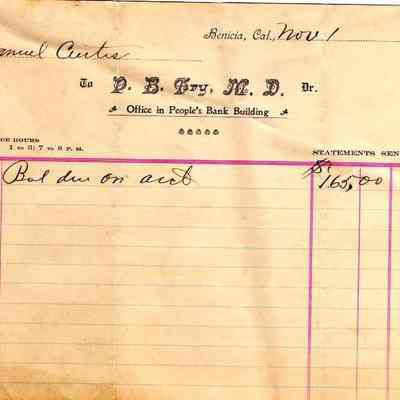 Benicia, Cal., Nov 1
amuel Curtis
To D. B. Fry, M. D. Dr.
Office in People's Bank Building
CE HOURS
1 to 3; 7 to 8 P. M.
STATEMENTS SEN
Bal due on acct $165,00